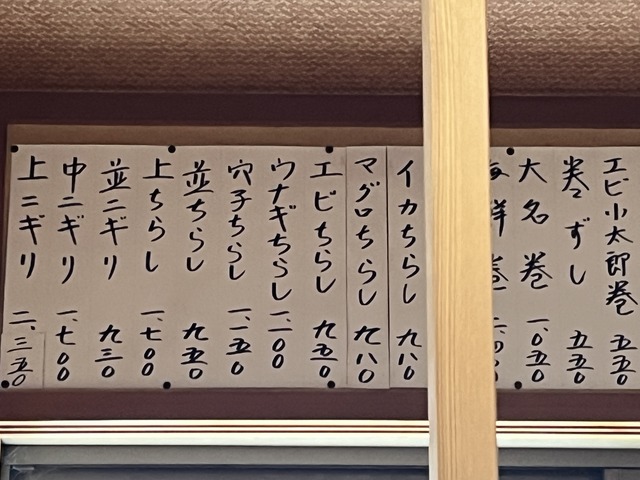 エビ小太郎巻 五五〇
巻ずし 五五〇
大名巻 一、〇五〇
鮮巻
イカちらし 九八〇
マグロちらし 九八〇
エビちらし 九五〇
ウナギちらし
穴子ちらし 一、一五〇
並ちらし 九五〇
上ちらし 一、七〇〇
並ニギリ 九三〇
中ニギリ 一、七〇〇
上ニギリ 二、三五〇